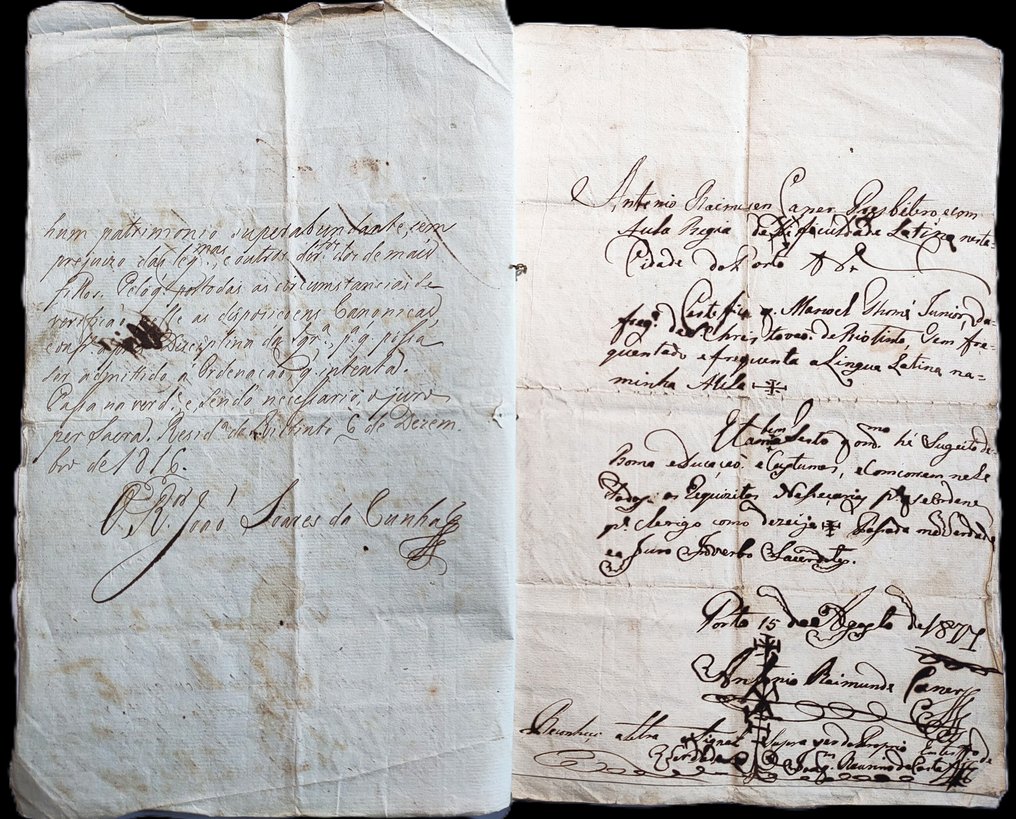 hum patrimonio superabundante, sem
prejuizo das leg.mas, e outros dos de mais
filhos. Pelo q. todas as circumstancias se
verificaõ elle as disposiçoens Canonicas,
Disciplina da Igr.ª, p.ª q. possa
ser admitido a Ordenaçaõ q. intenta.
Passa na verd.e, e sendo necessario, o juro
per Sacra. Resid.ª de 6 de Dezem-
bro de 1816.
O R.dor Joaõ Soares da Cunha
Antonio Raimun Caner Presbitero, e com
Aula Regia de Faculdade Latina nesta
Cidade do Porto
Certifico q. Manoel Thomé Junior, da
freg.ª de S. Christovaõ de Riotinto, tem fre-
quentado e frequenta a Lingua Latina na-
minha Aula
Tambem Certo q. o m.mo hé Sugeito de
Boma educaçaõ, e Custumes, e Comcorrem nele
Todos os Requizitos Neseçarios p.ª se ordenar
p.ª Clerigo como dezeija Pasada na Verdade
e o Juro Inverbo Sacerdotes.
Porto 15 de Agosto de
Antonio Raimundo Caner
Reconheço a letra e signal Supra ser do Proprio
Verdade